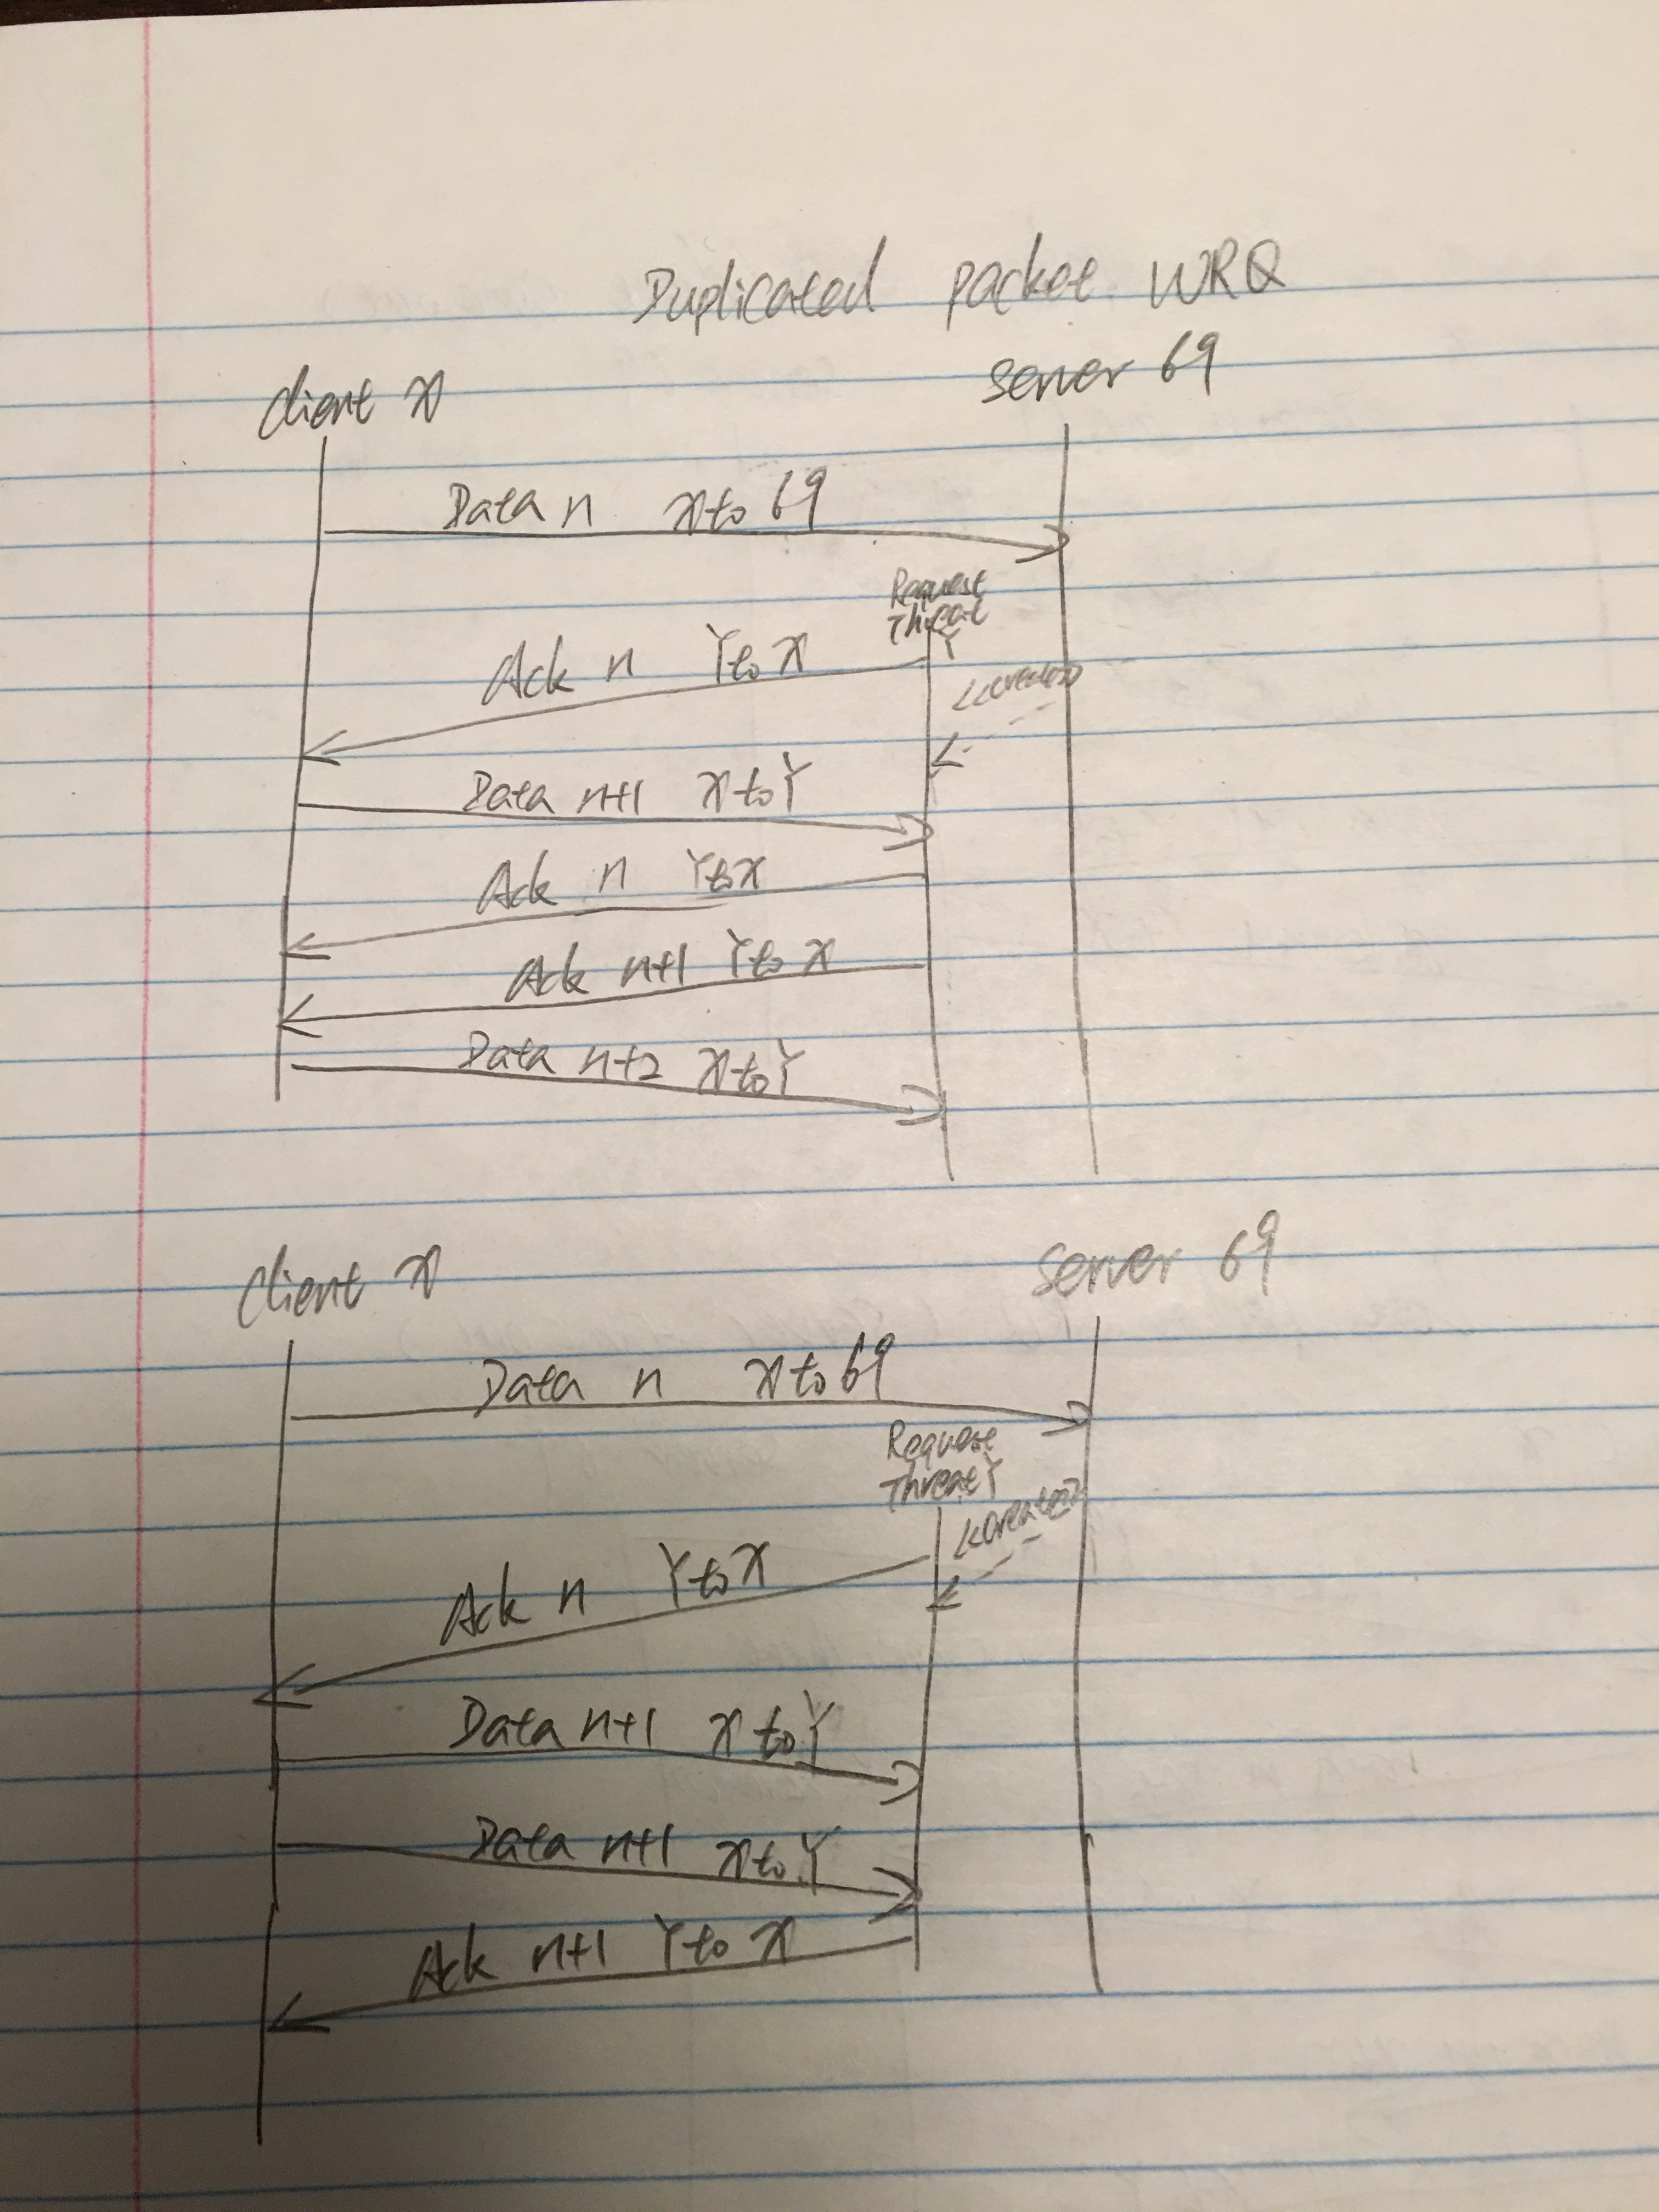 Duplicated packet WRQ
Client X
Server 69
Data n X to 69
Request
Threat
Y
Ack n Y to X
<<create>>
Data n+1 X to Y
Ack n Y to X
Ack n+1 Y to X
Data n+2 X to Y
Client X
Server 69
Data n X to 69
Request
Threat Y
<<create>>
Ack n Y to X
Data n+1 X to Y
Data n+1 X to Y
Ack n+1 Y to X